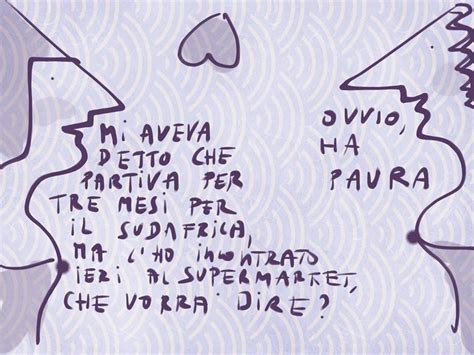 MI AVEVA
DETTO CHE
PARTIVA PER
TRE MESI PER
IL SUDAFRICA,
MA L'HO INCONTRATO
IERI AL SUPERMARKET,
CHE VORRÀ DIRE?
OVVIO,
HA
PAURA